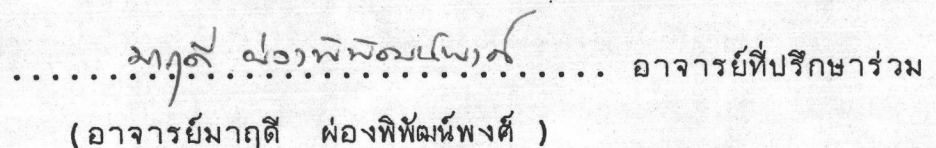 มาฤดี ผ่องพิพัฒน์พงศ์ อาจารย์ที่ปรึกษาร่วม
(อาจารย์มาฤดี ผ่องพิพัฒน์พงศ์ )